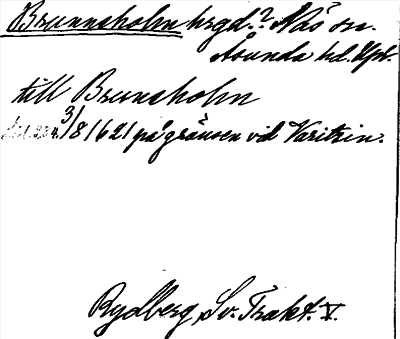 Brunnsholm hrgd.? Näs sn.
Åsunda hd. Upl.
till Brunsholm
3/8 1621 på gränsen vid Varitzin.
Rydberg, Sv. Trakt. V.